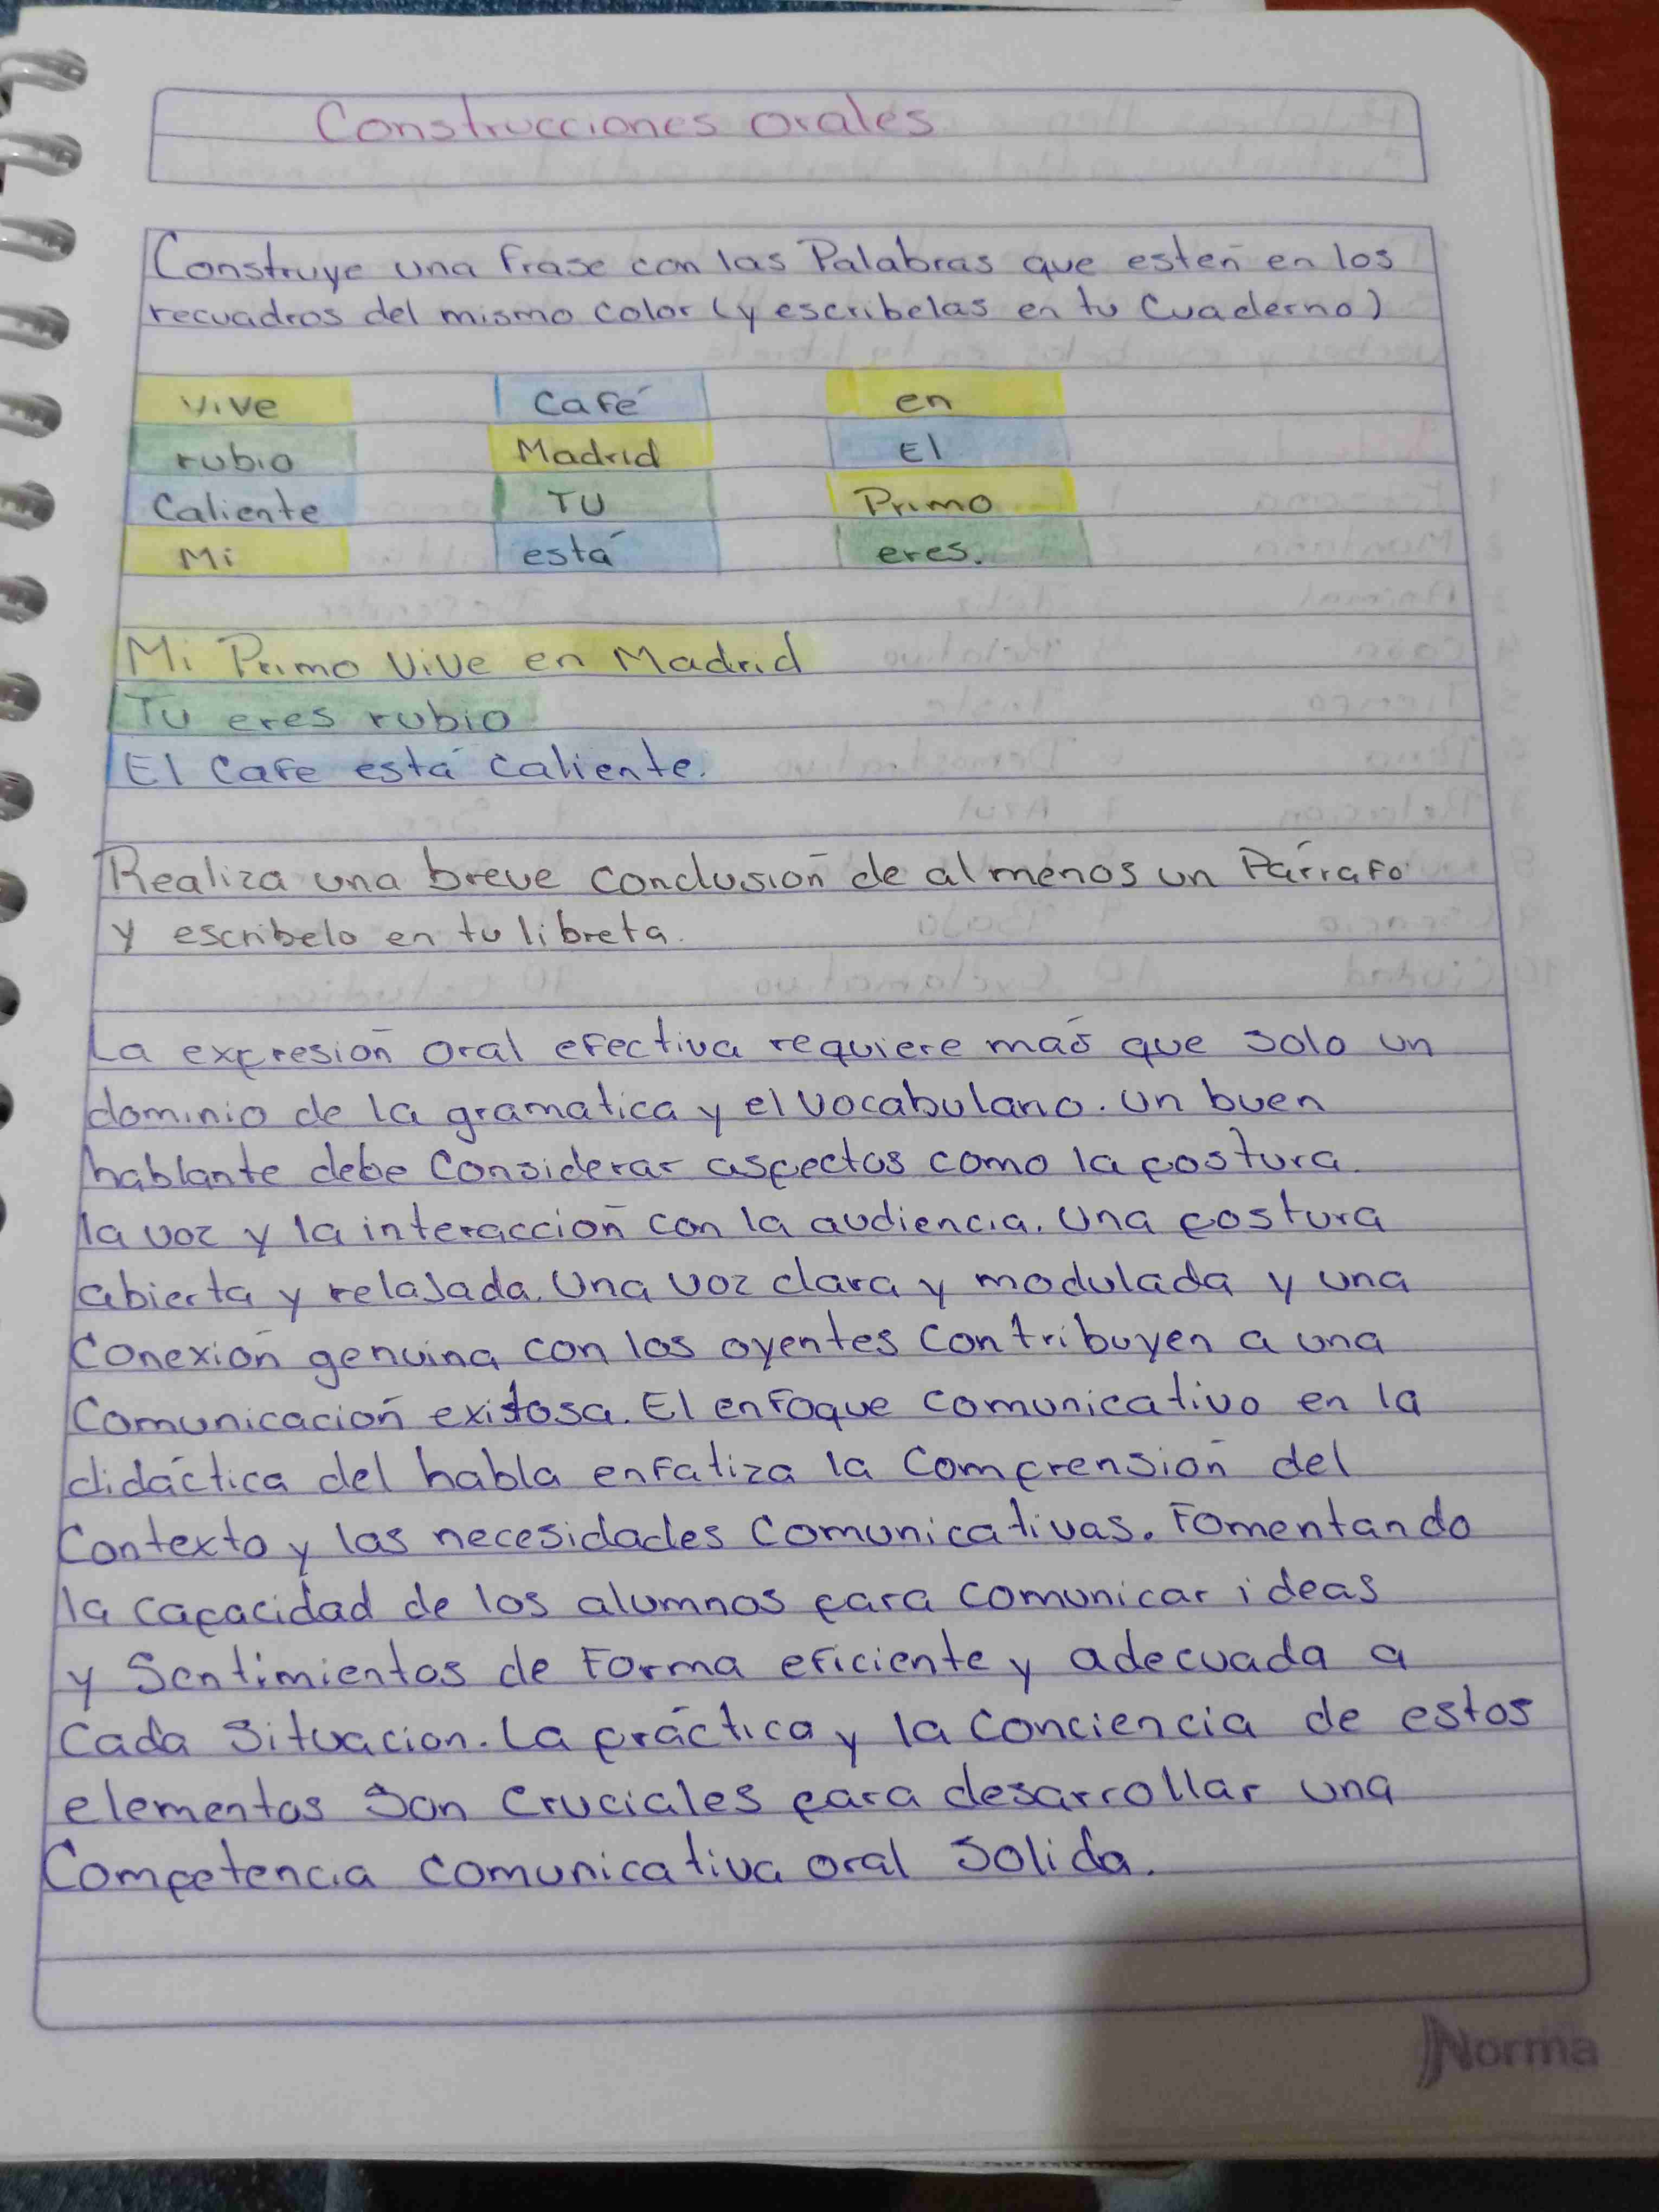 Construcciones orales
Construye una frase con las Palabras que esten en los
recuadros del mismo color (y escribelas en tu Cuaderno)
vive Café en
rubio Madrid El
Caliente TU Primo
Mi está eres.
Mi Primo vive en Madrid
Tu eres rubio
El Cafe está Caliente.
Realiza una breve conclusión de al menos un Párrafo
y escribelo en tu libreta.
La expresión oral efectiva requiere más que solo un
dominio de la gramatica y el vocabulario. un buen
hablante debe Considerar aspectos como la postura.
la voz y la interacción con la audiencia. Una postura
abierta y relajada. Una voz clara y modulada y una
Conexión genuina con los oyentes Contribuyen a una
Comunicación exitosa. El enfoque comunicativo en la
didáctica del habla enfatiza la Comprensión del
Contexto y las necesidades Comunicativas. Fomentando
la capacidad de los alumnos para comunicar ideas
y Sentimientos de Forma eficiente y adecuada a
Cada Situacion. La práctica y la Conciencia de estos
elementos Son Cruciales para desarrollar una
Competencia comunicativa oral Solida.
Norma